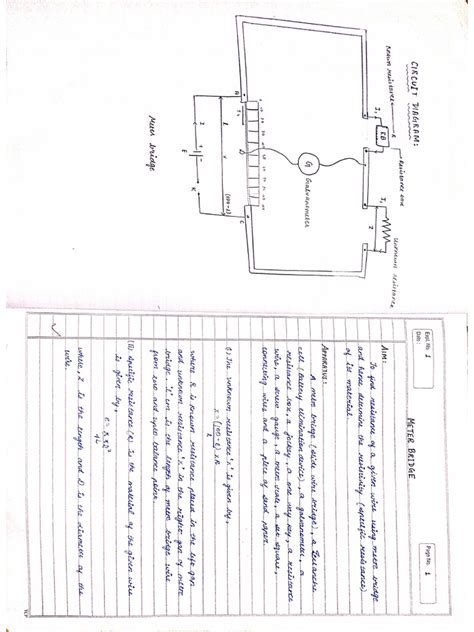 CIRCUIT DIAGRAM:
Known Resistance
R
Resistance box
RB
Unknown Resistance
G
Galvanometer
A
D
C
l
(100-l)
E
K
Meter bridge
Expt. No. 1
Date:
Page No. 1
METER BRIDGE
AIM:
To find resistance of a given wire using meter bridge
and hence determine the resistivity (specific resistance)
of its material.
APPARATUS:
A meter bridge (slide wire bridge), a Leclanche
cell (battery elimination device), a galvanometer, a
resistance box, a jockey, a one way key, a resistance
wire, a screw gauge, a meter scale, a set square,
connecting wires and a piece of sand paper.
(i) The unknown resistance 'X' is given by,
X = (100-l) × R
l
where R is known resistance placed in the left gap
and unknown resistance 'X' in the right gap of meter
bridge. 'l' cm is the length of meter bridge wire
from zero end upto balance point.
(ii) Specific resistance of the material of the given wire
is given by,
4L
where, L is the length and D is the diameter of the
wire.